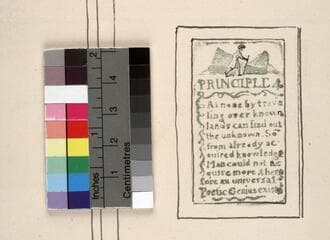 PRINCIPLE 4
As none by trave
ling over known
lands can find out
the unknown. So
from already ac
quired knowledge
Man could not ac
quire more. there
fore an universal
Poetic Genius exists
Inches
1
2
Centimetres
1
2
3
4